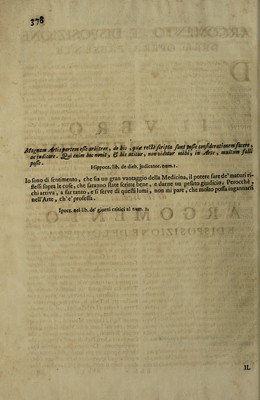 378
Magnam Artis partem esse arbitror, de his, quæ rectè scripta sunt posse considerationem facere,
ac judicare. Qui enim hæc novit, & his utitur, non videtur mihi, in Arte, multùm falli
posse.
Hippocr. lib. de dieb. Judicator. num. 1.
Io sono di sentimento, che sia un gran vantaggio della Medicina, il potere fare de' maturi ri-
flessi sopra le cose, che saranno state scritte bene, e darne un pesato giudicio. Perocchè,
chi arriva, a far tanto, e si serve di questi lumi, non mi pare, che molto possa ingannarsi
nell'Arte, ch'e' professa.
Ipocr. nel lib. de' giorni critici al num. 1.
IL